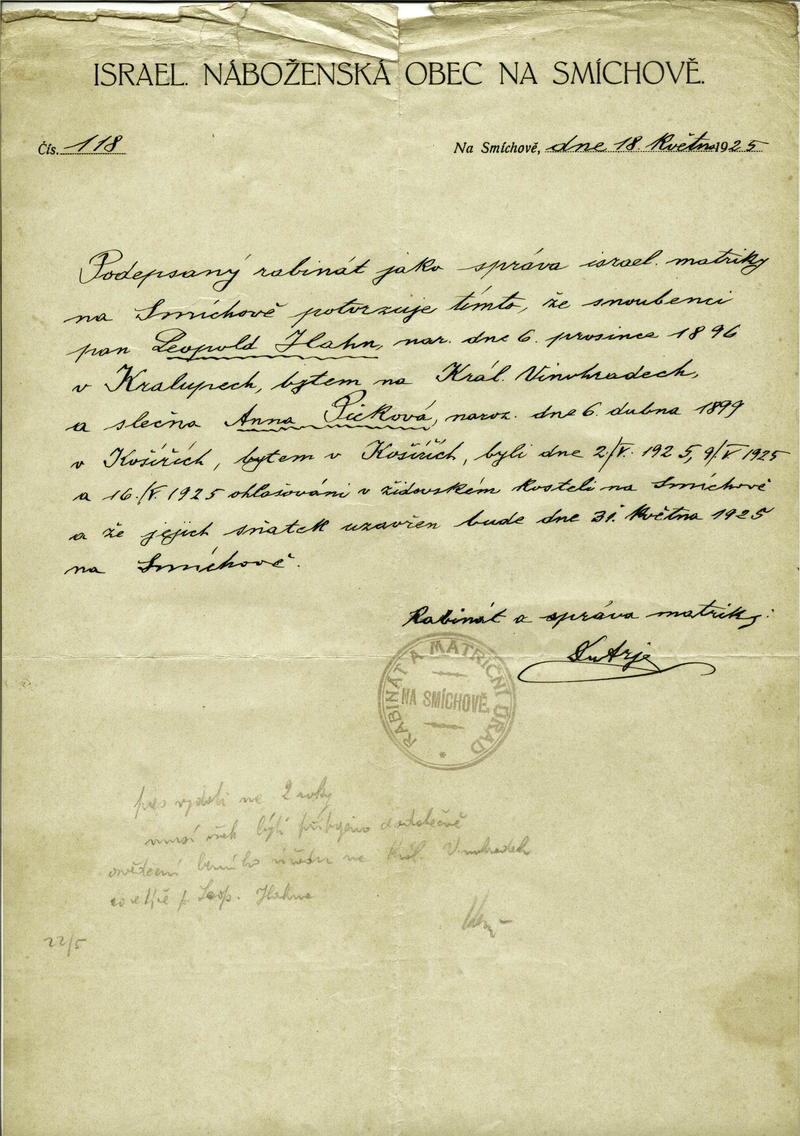 ISRAEL. NÁBOŽENSKÁ OBEC NA SMÍCHOVĚ.
Čís. 118
Na Smíchově, dne 18 května 1925
Podepsaný rabinát jako správa israel. matriky
na Smíchově potvrzuje tímto, že snoubenci
pan Leopold Hahn, nar. dne 6. prosince 1896
v Kralupech, bytem na Král. Vinohradech,
a slečna Anna Picková, naroz. dne 6. dubna 1899
v Košířích, bytem v Košířích, byli dne 2/V. 1925, 9/V 1925
a 16./V. 1925 ohlašováni v židovském kostele na Smíchově
a že jejich sňatek uzavřen bude dne 31. května 1925
na Smíchově.
Rabinát a správa matriky:
RABINÁT A MATRIČNÍ ÚŘAD
NA SMÍCHOVĚ.
pas vydati na 2 roky
musí však býti dodatečně
osvědčení berního úřadu na Král. Vinohradech
p. Leop. Hahna
22/5